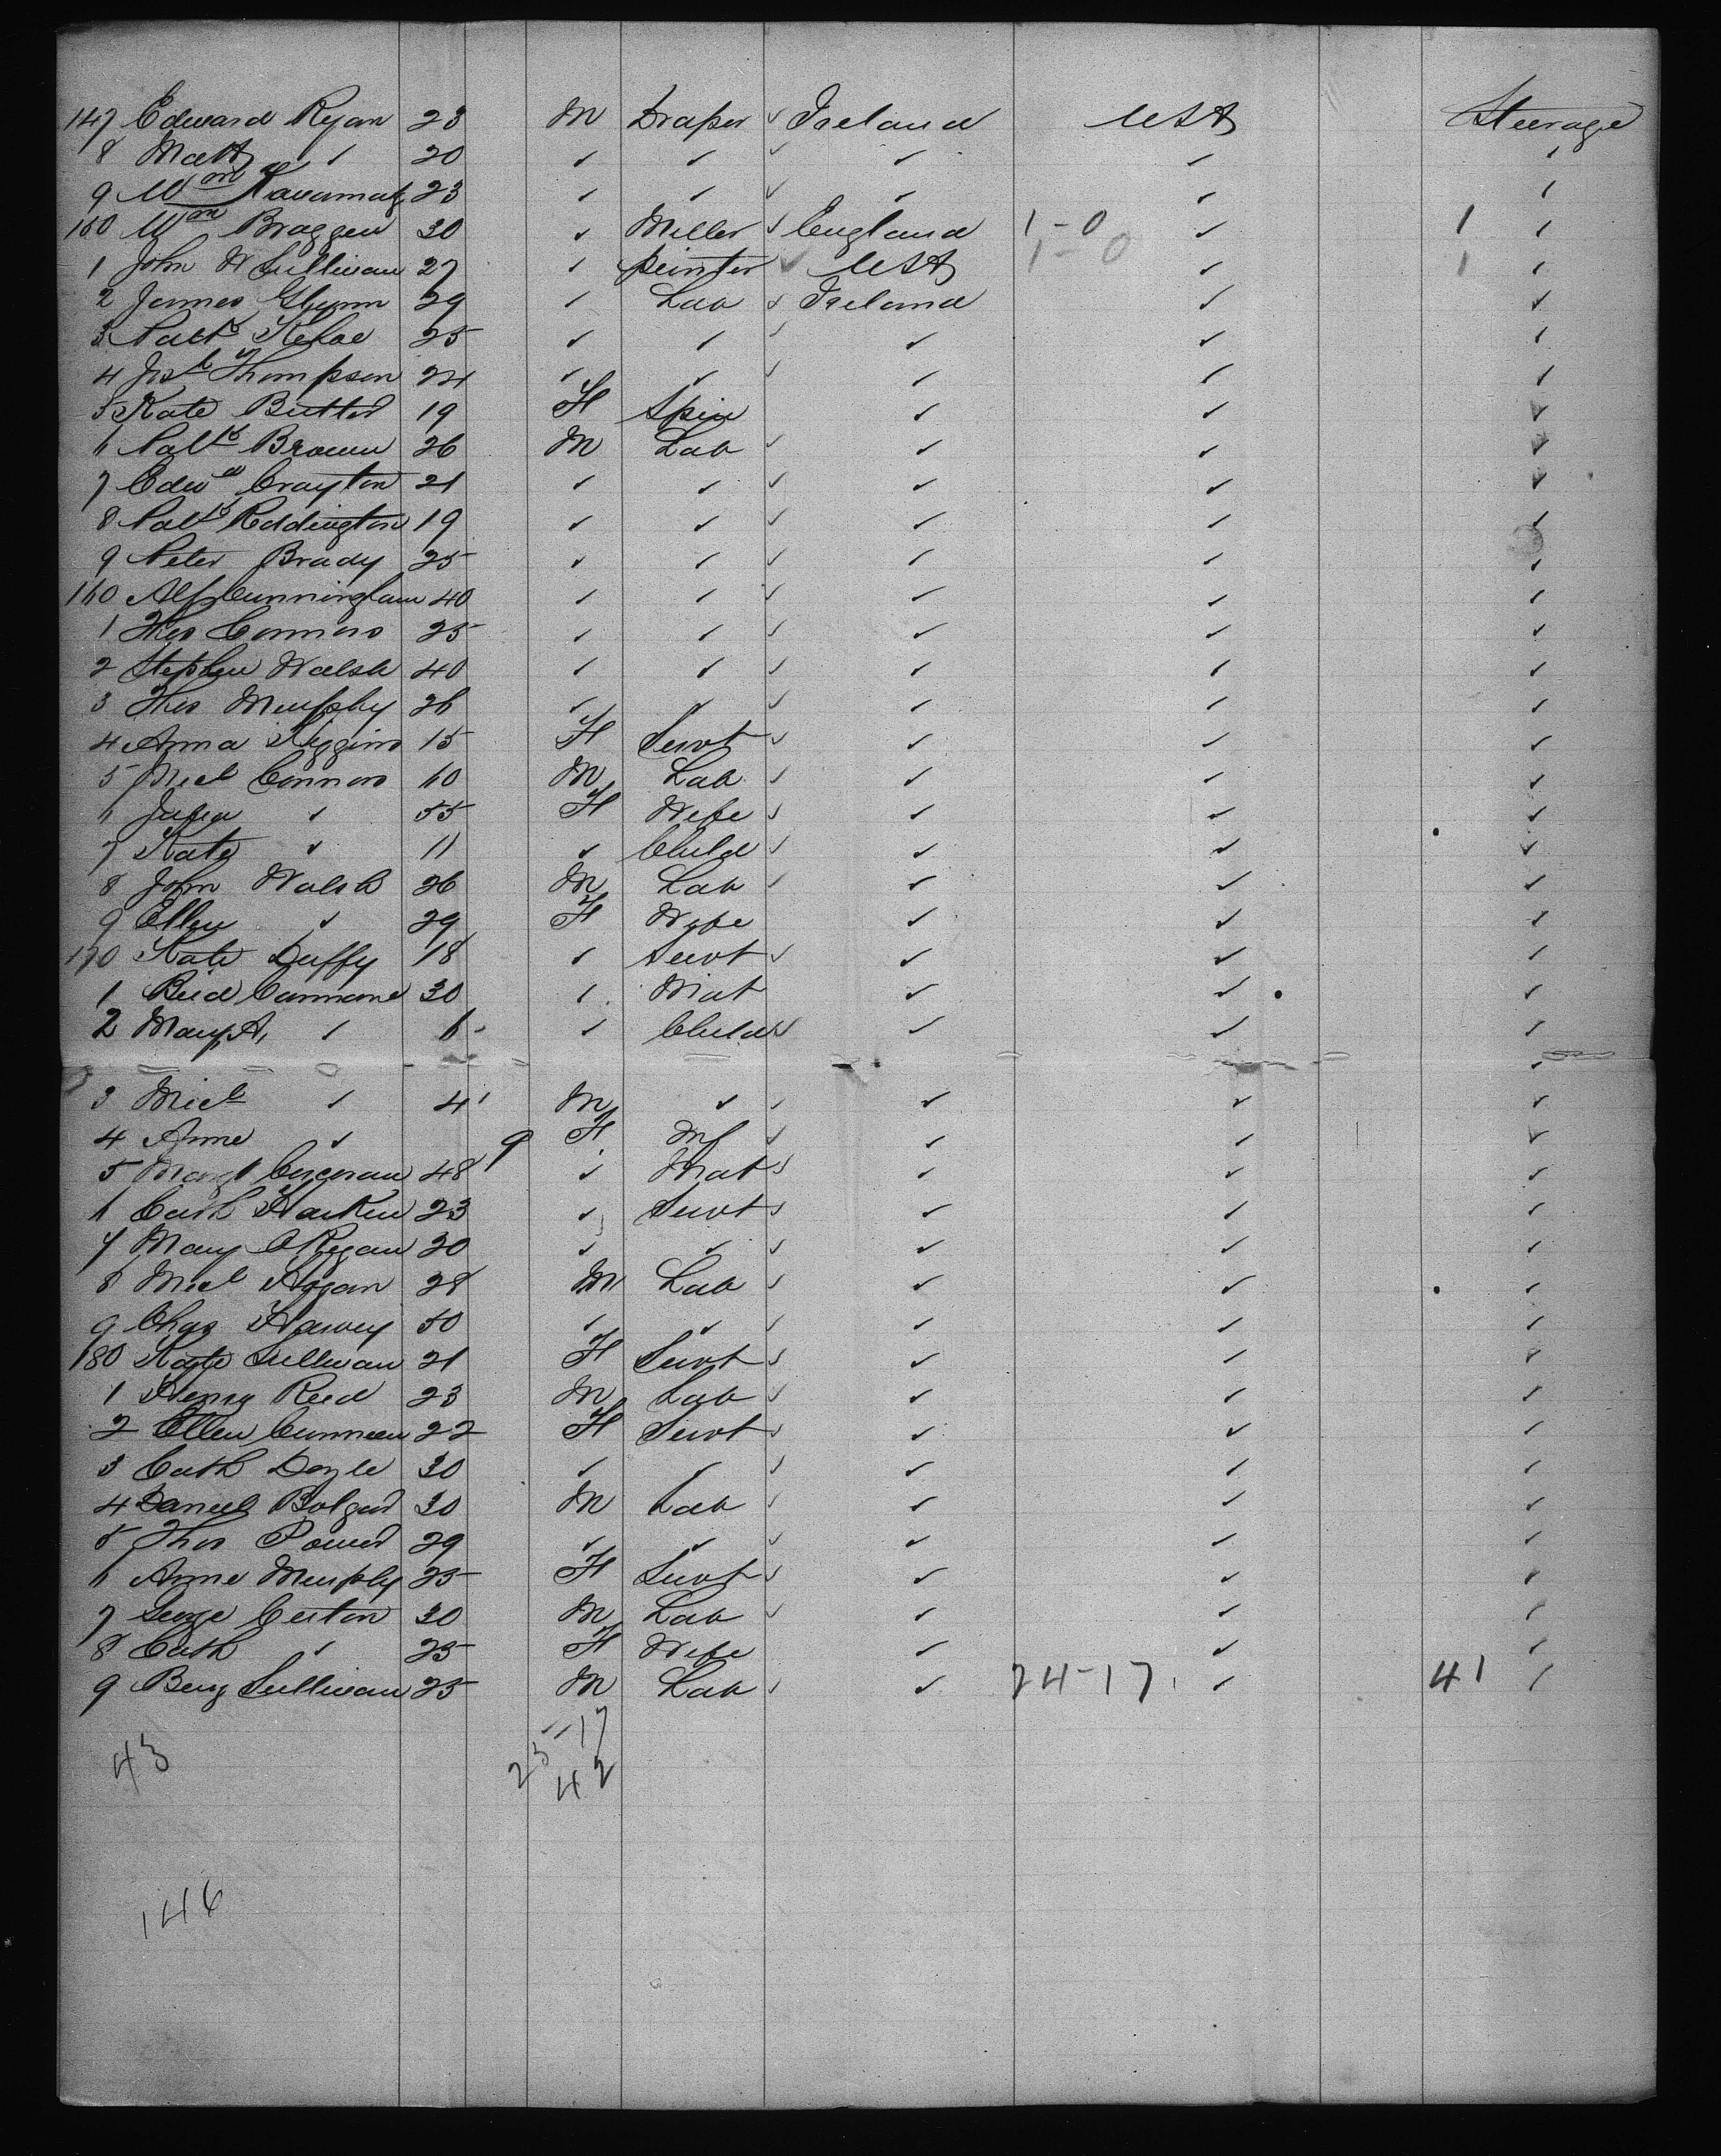 147 Edward Ryan 23 M Draper ✓ Ireland USA Steerage
8 Matt ✓ 20 ✓ ✓ ✓ ✓ ✓ ✓
9 Wm 23 ✓ ✓ ✓ ✓ ✓ ✓
150 Wm Braggen 30 ✓ Miller ✓ England 1-0 ✓ 1 ✓
1 John W Sullivan 27 ✓ printer ✓ USA 1-0 ✓ 1 ✓
2 James Glynn 29 ✓ Lab ✓ Ireland ✓ ✓
3 Patk Kehoe 25 ✓ ✓ ✓ ✓ ✓ ✓
4 Josh Thompson 24 ✓ ✓ ✓ ✓ ✓ ✓
5 Kate Butler 19 F Spin ✓ ✓ ✓
6 Patk Brown 26 M Lab ✓ ✓ ✓ ✓
7 Edwd Crayton 21 ✓ ✓ ✓ ✓ ✓ ✓
8 Patk Reddington 19 ✓ ✓ ✓ ✓ ✓ ✓
9 Peter Brady 25 ✓ ✓ ✓ ✓ ✓ ✓
160 Alf Cunningham 40 ✓ ✓ ✓ ✓ ✓ ✓
1 Thos Connors 25 ✓ ✓ ✓ ✓ ✓ ✓
2 Stephen Walsh 40 ✓ ✓ ✓ ✓ ✓ ✓
3 Thos Murphy 26 ✓ ✓ ✓ ✓ ✓ ✓
4 Anna Higgins 15 F Servt ✓ ✓ ✓ ✓
5 Micl Connors 60 M Lab ✓ ✓ ✓ ✓
6 Julia ✓ 55 F Wife ✓ ✓ ✓ ✓
7 Kate ✓ 11 ✓ Child ✓ ✓ ✓ ✓
8 John Walsh 26 M Lab ✓ ✓ ✓ ✓
9 Ellen ✓ 29 F Wife ✓ ✓ ✓
170 Kate Duffy 18 ✓ Servt ✓ ✓ ✓ ✓
1 Brid Cannane 30 ✓ Mat ✓ ✓ ✓
2 Mary A, ✓ 6 ✓ Child ✓ ✓ ✓ ✓
3 Micl ✓ 4 M ✓ ✓ ✓ ✓ ✓
4 Anne ✓ 9 F Inf ✓ ✓ ✓ ✓
5 Margt Corcoran 48 ✓ Mat ✓ ✓ ✓ ✓
6 Cath Harkin 23 ✓ Servt ✓ ✓ ✓ ✓
7 Mary O Regan 20 ✓ ✓ ✓ ✓ ✓ ✓
8 Micl Hogan 28 M Lab ✓ ✓ ✓ ✓
9 Chas Harvey 50 ✓ ✓ ✓ ✓ ✓ ✓
180 Kate Sullivan 21 F Servt ✓ ✓ ✓ ✓
1 Henry Reed 23 M Lab ✓ ✓ ✓ ✓
2 Ellen Cunneen 22 F Servt ✓ ✓ ✓ ✓
3 Cath Doyle 30 ✓ ✓ ✓ ✓ ✓ ✓
4 Daniel Bolger 30 M Lab ✓ ✓ ✓ ✓
5 Thos Power 29 ✓ ✓ ✓ ✓ ✓ ✓
6 Anne Murphy 25 F Servt ✓ ✓ ✓ ✓
7 George 30 M Lab ✓ ✓ ✓ ✓
8 Cath ✓ 25 F Wife ✓ ✓ ✓
9 Benj Sullivan 25 M Lab ✓ ✓ 24-17 ✓ 41 ✓
43 25-17
42
146